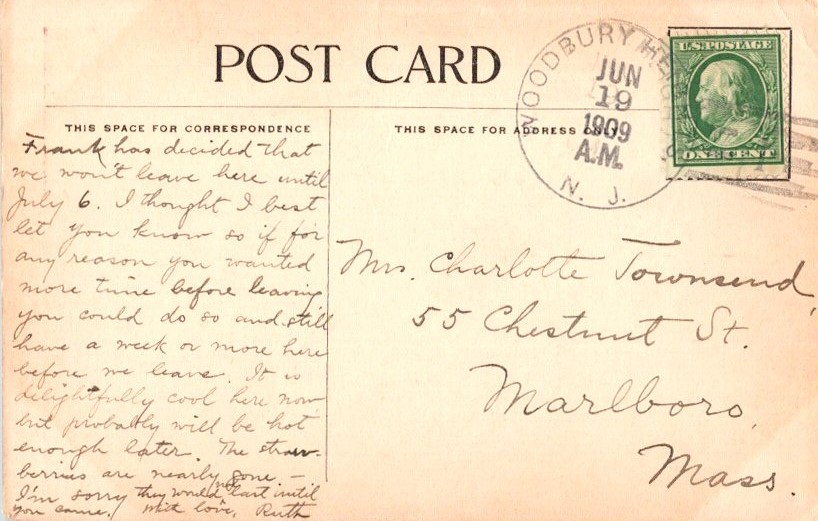 POST CARD
WOODBURY HEIGHTS
JUN
19
1909
A.M.
N. J.
U.S. POSTAGE
ONE CENT
THIS SPACE FOR CORRESPONDENCE
THIS SPACE FOR ADDRESS ONLY
Frank has decided that
we won't leave here until
July 6. I thought I best
let you know so if for
any reason you wanted
more time before leaving
you could do so and still
have a week or more here
before we leave. It is
delightfully cool here now
but probably will be hot
enough later. The straw-
berries are nearly gone –
I'm sorry they would not last until
you came. With love, Ruth
Mrs. Charlotte Townsend,
55 Chestnut St.
Marlboro,
Mass.